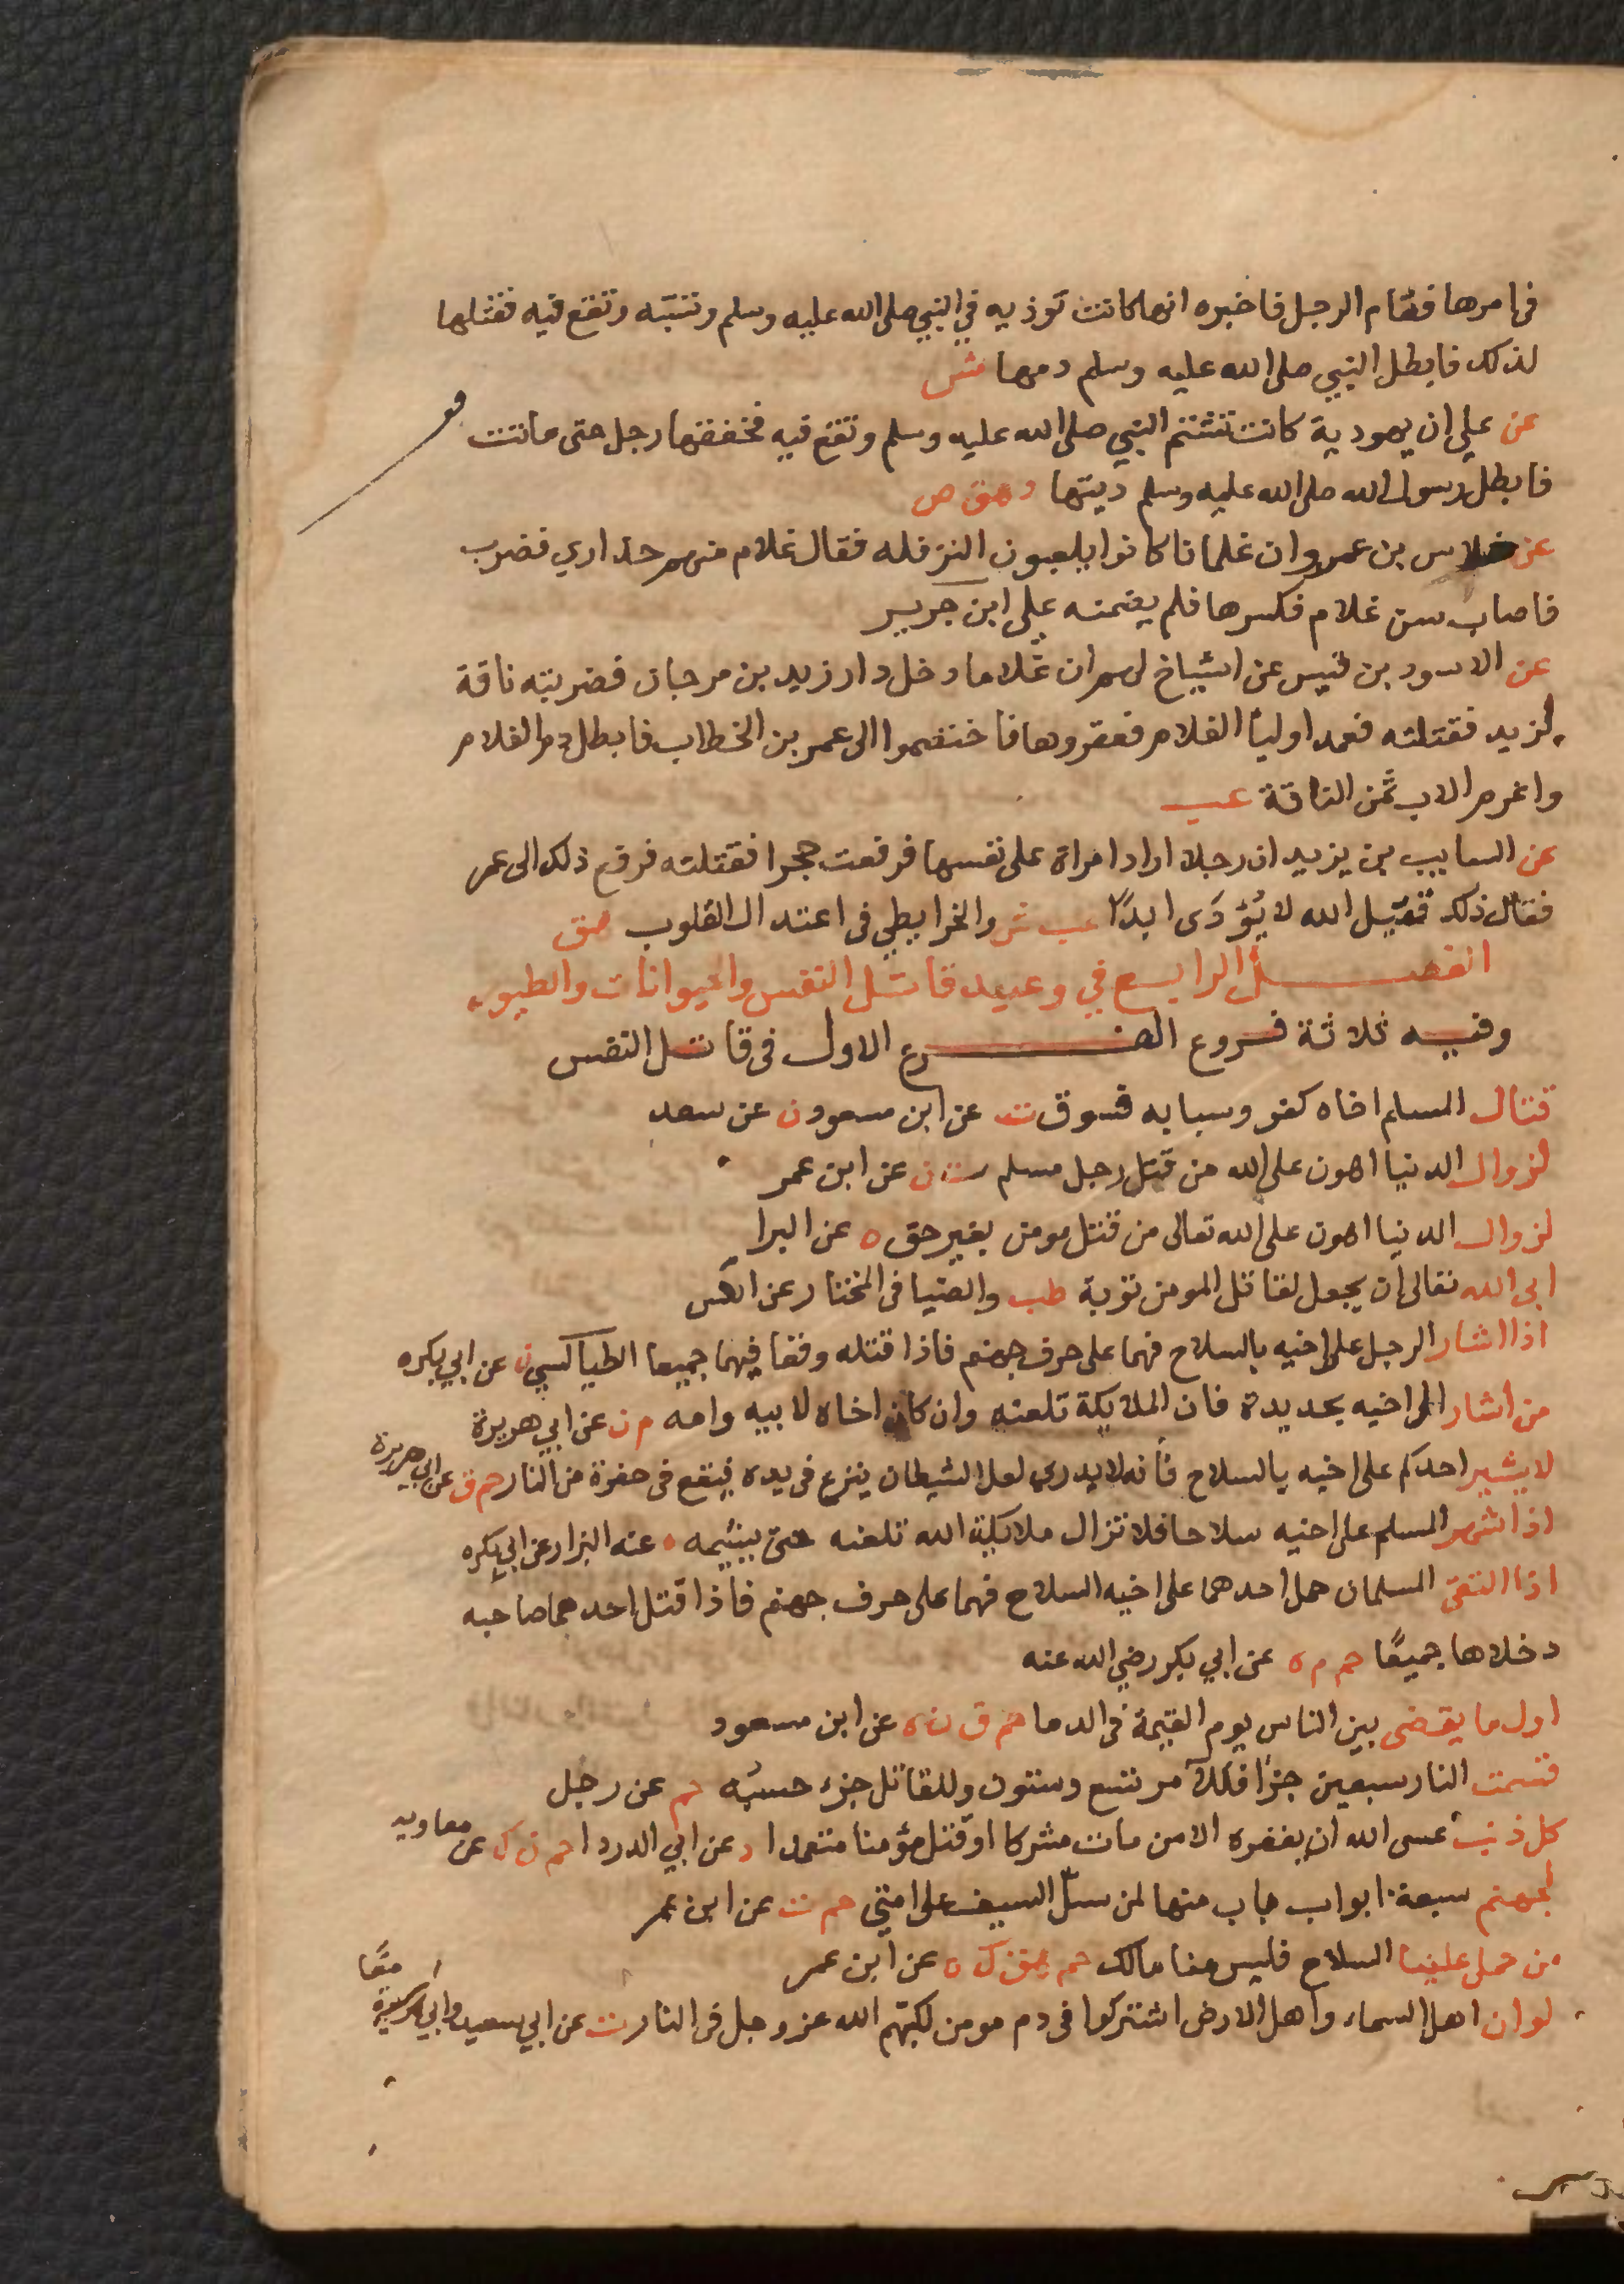 فى امرها فقام الرجل فاخبره انها كانت توذيه في النبي صلى الله عليه وسلم وتسبّه وتقع فيه فقتلها
لذلك فابطل النبي صلى الله عليه وسلم دمها ش
عن علي ان يهودية كانت تشتم النبي صلى الله عليه وسلم وتقع فيه فخنقها رجل حتى ماتت
فابطل رسول الله صلى الله عليه وسلم ديتها د هق ص
عن خلاس بن عمرو ان غلمانا كانوا يلعبون النزفله فقال غلام منهم حذاري فضرب
فاصاب سن غلام فكسرها فلم يضمنه علي ابن جرير
عن الاسود بن قيس عن اشياخ لهم ان غلاما دخل دار زيد بن مرجان فضربته ناقة
لزيد فقتلته فعمد اولياً الغلام فعقروها فاختصموا الى عمر بن الخطاب فابطل دم الغلام
واغرم الاب ثمن الناقة عب
عن السايب بن يزيد ان رجلا اراد امراة على نفسها فرفعت حجرا فقتلته فرفع ذلك الى عمر
فقال ذلك قتيل الله لا يُؤدَى ابدًا عب ش والخرايطي فى اعتدال القلوب هق
الفصل الرابع في وعيد قاتل النفس والحيوانات والطيور
وفيه ثلاثة فروع الفرع الاول فى قاتل النفس
قتال المسلم اخاه كفر وسبابه فسوق ت عن ابن مسعود ن عن سعد
لزوال الدنيا اهون على الله من قتل رجل مسلم ت ن عن ابن عمر
لزوال الدنيا اهون على الله تعالى من قتل مومن بغير حق ه عن البرا
ابى الله تعالى ان يجعل لقاتل المومن توبة طب والضيا فى المختار عن انس
اذا اشار الرجل على اخيه بالسلاح فهما على حرف جهنم فاذا قتله وقعا فيهما جميعا الطيالسي ن عن ابي بكره
من اشار الى اخيه بحديدة فان الملايكة تلعنه وان كان اخاه لابيه وامه م ن عن ابي هريرة
لا يشير احدكم على اخيه بالسلاح فأنه لا يدري لعل الشيطان ينزع فى يده فيقع فى حفرة من النار حم ق عن ابي هريرة
اذا شهر المسلم على اخيه سلاحا فلا تزال ملايكة الله تلعنه حتى يشيمه عنه البزار عن ابي بكره
اذا التقى المسلمان حمل احدهما على اخيه السلاح فهما على حرف جهنم فاذا قتل احدهما صاحبه
دخلاها جميعًا حم م ه عن ابي بكر رضي الله عنه
اول ما يقضى بين الناس يوم القيمة فى الدما حم ق ن ه عن ابن مسعود
قسمت النار سبعين جزأ فللآمر تسع وستون وللقاتل جزء حسبه حم عن رجل
كل ذنب عسى الله ان يغفره الا من مات مشركا او قتل مؤمنا متعمدا د عن ابي الدردا حم ن ك عن معاويه
لجهنم سبعة ابواب باب منها لمن سلّ السيف على امتي حم ت عن ابن عمر
من حمل علينا السلاح فليس منا مالك حم ق ن ه عن ابن عمر
لو ان اهل السماء واهل الارض اشتركوا فى دم مومن لكبّهم الله عز وجل فى النار ت عن ابي سعيد وابي هريرة معًا